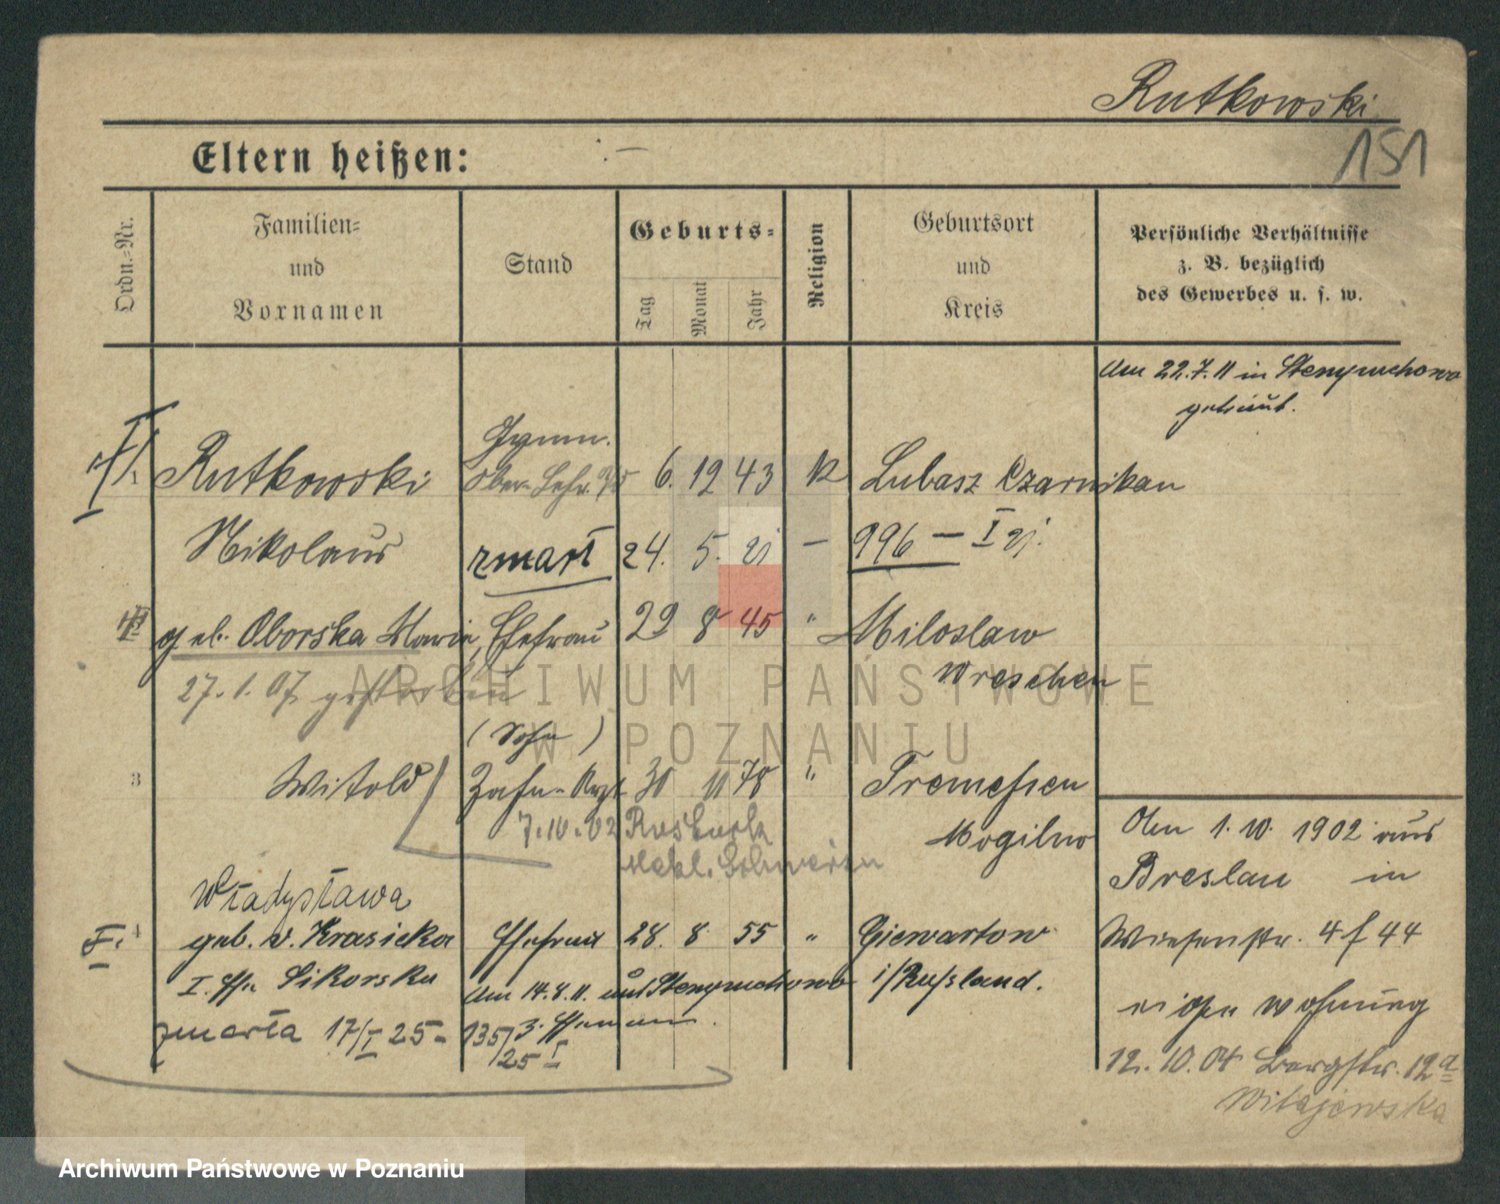 Rutkowski
151
Eltern heißen: —
Ordn.-Nr.
Familien-
und
Vornamen
Stand
Geburts-
Tag
Monat
Jahr
Religion
Geburtsort
und
Kreis
Persönliche Verhältnisse
z. B. bezüglich
des Gewerbes u. s. w.
Am 22.7.11 in
getraut.
Gymn.
Rutkowski Ober-Lehr. 6. 12 43 K Lubasz Czarnikau
Nikolaus zmarł 24. 5. 21 — 996 — I 21.
geb. Oborska Marie, Ehefrau 29 8 45 " Miloslaw
Wreschen
27.1.07 gestorben
(Sohn)
3 Witold Zahn-Arzt 30 11 78 " Tremessen
Mogilno
7.10.02 Rostock
Meckl. Schwerin
Den 1.10. 1902 aus
Breslau in
Wiesenstr. 4 f 44
eigene Wohnung
12.10.04 Bergstr. 12a
Witajewska
Władysława
4 geb. v. Krasicka Ehefrau 28. 8 55 " Giewartow
i/Russland.
I. Ehe Sikorska
Am 14.8.11. aus
zmarła 17/I 25- 135/25 I
ARCHIWUM PAŃSTWOWE
W POZNANIU
Archiwum Państwowe w Poznaniu